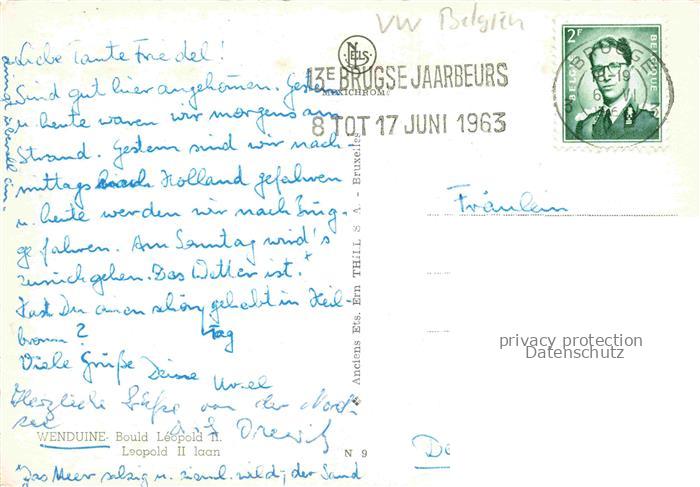 VW Belgien
Liebe Tante Friedel!
Sind gut hier angekommen. Gestern
u. heute waren wir morgens am
Strand. Gestern sind wir nach-
mittags nach Holland gefahren
u. heute werden wir nach Brüg-
ge fahren. Am Sonntag wird's
zurückgehen. Das Wetter ist.
Hast Du einen schönen Tag gehabt in Heil-
bronn?
Viele Grüße Deine Ursel
Herzliche Grüße von der Nord-
see
WENDUINE- Bould Léopold II.
Leopold II laan
N 9
Das Meer salzig u. ziеml. wild, der Sand
überall ein.
NELS
MEXICHROM
13E BRUGSE JAARBEURS
8 TOT 17 JUNI 1963
Anciens Ets. Ern THILL S A. - Bruxelles
2F
BELGIE
BELGIQUE
BRUGGE
19
Fräulein
privacy protection
Datenschutz